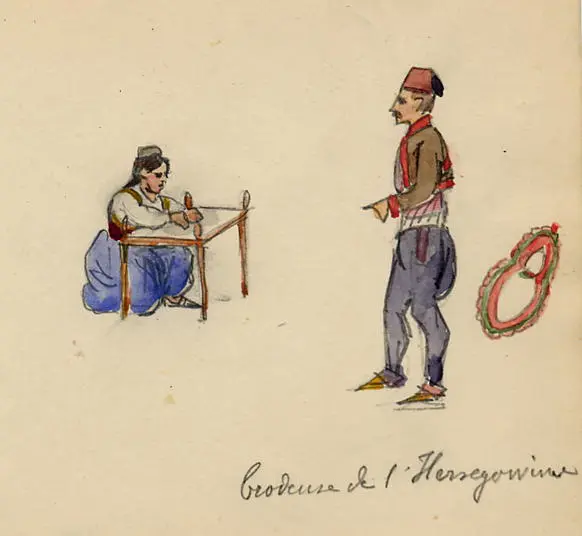 brodeuse de l'Hersegowine